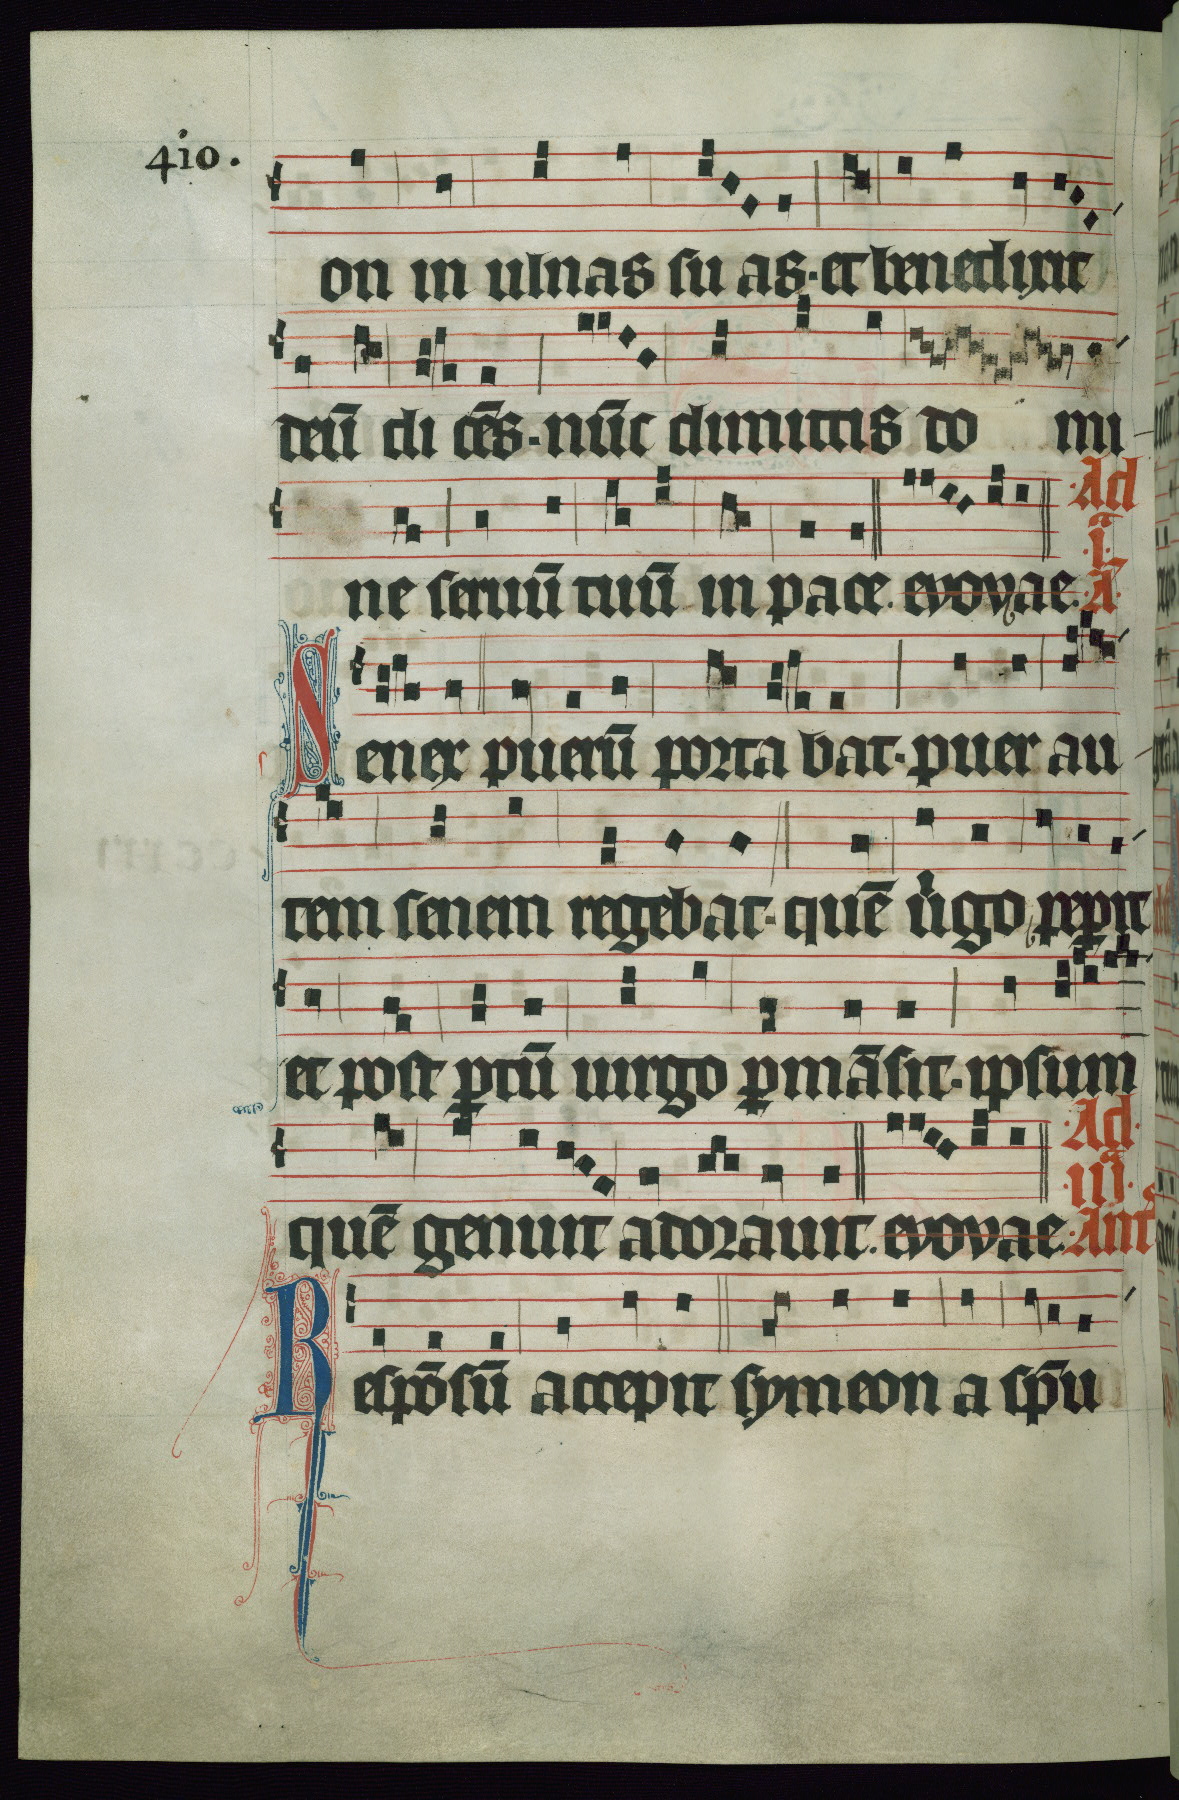 410.
on in ulnas su as· et benedixit
deū di cēs· nūc dimittis do mi
Ad
ne seruū tuū in pace. evovae. ·ī· A
Senex puerū porta bat· puer au
tem senem regebat· quē uirgo peperit
et post ꝑtū uirgo ꝑmāsit· ipsum
·Ad·
·iii·
quē genuit adorauit. evovae. Ant
Respōsū accepit symeon a spū